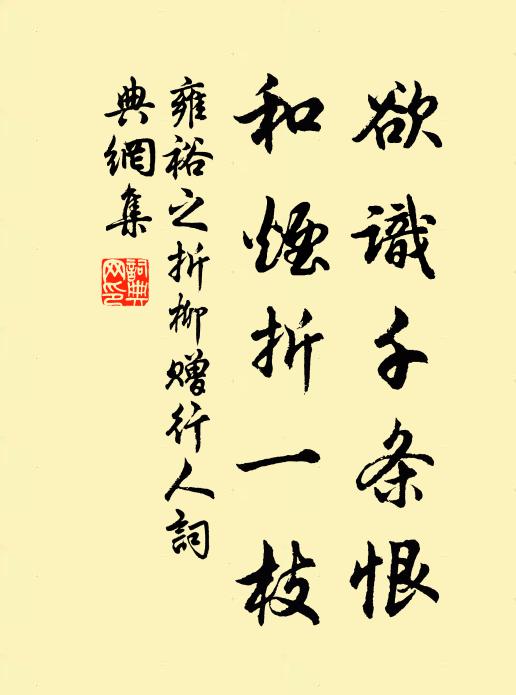 欲識千条恨
和煙折一枝
雍裕之折柳赠行人詞
典網集
詞典
网印